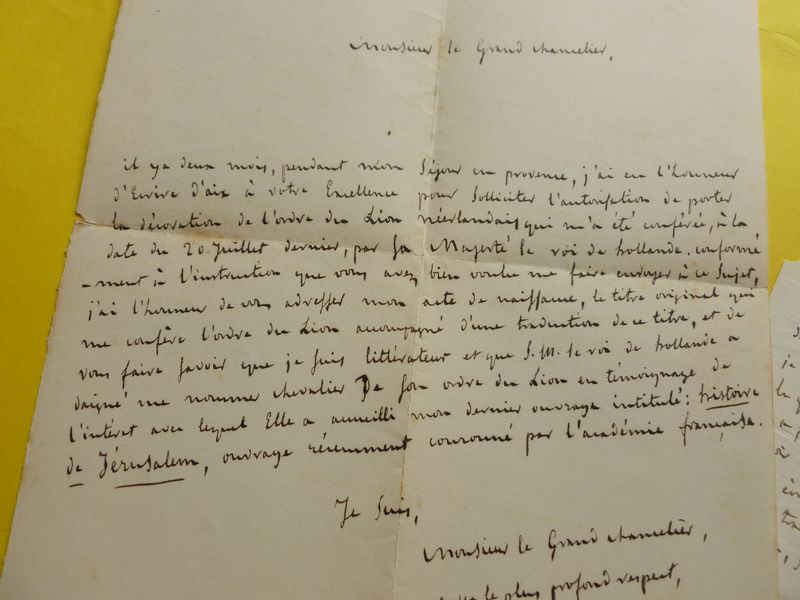 Monsieur le Grand chancelier,
il y a deux mois, pendant mon Séjour en provence, j'ai eu l'honneur
d'Ecrire d'aix à votre Excellence pour Solliciter l'autorisation de porter
la décoration de l'ordre du Lion néerlandais qui m'a été conférée, à la
date du 20 Juillet dernier, par Sa Majesté le roi de hollande. conformé
-ment à l'instruction que vous avez bien voulu me faire envoyer à ce Sujet,
j'ai l'honneur de vous adresser mon acte de naissance, le titre original qui
me confère l'ordre du Lion accompagné d'une traduction de ce titre, et de
vous faire Savoir que je Suis littérateur et que S. M. le roi de hollande a
daigné me nommer chevalier De Son ordre du Lion en témoignage de
l'intéret avec lequel Elle a accueilli mon dernier ouvrage intitulé: histoire
de Jérusalem, ouvrage récemment couronné par l'académie française.
Je Suis,
Monsieur le Grand chancelier,
le plus profond respect,